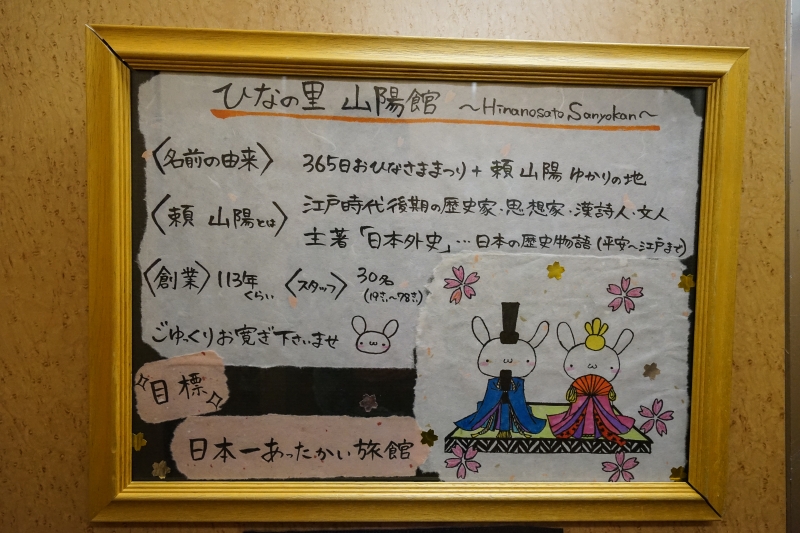 ひなの里 山陽館 〜Hinanosato Sanyokan〜
〈名前の由来〉 365日おひなさままつり + 頼 山陽 ゆかりの地
〈頼 山陽とは〉 江戸時代後期の歴史家・思想家・漢詩人・文人
主著「日本外史」…日本の歴史物語(平安〜江戸まで)
〈創業〉113年くらい 〈スタッフ〉30名
(19さい〜78さい)
ごゆっくりお寛ぎ下さいませ
目標
日本一あったかい旅館